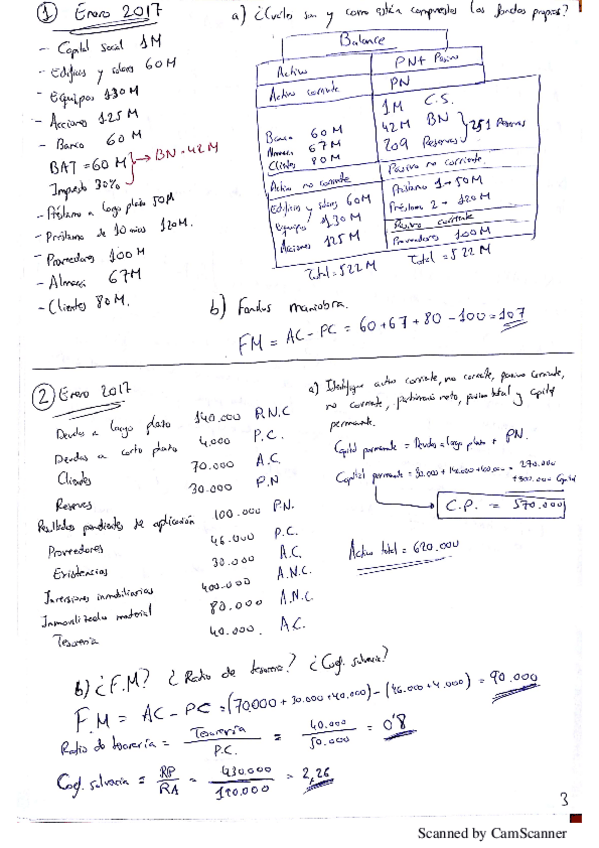 ① Enero 2017
- Capital social 1M
- Edificios y solares 60M
- Equipos 130M
- Acciones 125M
- Banco 60M
BAT = 60M → BN = 42M
Impuesto 30%
- Préstamo a largo plazo 50M
- Préstamo de 10 años 120M.
- Proveedores 100M
- Almacén 67M
- Clientes 80M.
a) ¿Cuáles son y como están compuestos los fondos propios?
Balance
Activo PN + Pasivo
Activo corriente PN
1M C.S.
Banco 60M 42M BN
Almacén 67M 209 Reservas 251 Reservas
Clientes 80M
Activo no corriente Pasivo no corriente
Edificios y solares 60M Préstamo 1 → 50M
Equipos 130M Préstamo 2 → 120M
Acciones 125M Pasivo corriente
Proveedores 100M
Total = 522M Total = 522M
b) Fondos maniobra.
FM = AC - PC = 60 + 67 + 80 - 100 = 107
② Enero 2017
Deudas a largo plazo 140.000 P.N.C
Deudas a corto plazo 4.000 P.C.
Clientes 70.000 A.C.
Reservas 30.000 P.N
Resultados pendientes de aplicación 100.000 P.N.
Proveedores 46.000 P.C.
Existencias 30.000 A.C.
Inversiones inmobiliarias 400.000 A.N.C.
Inmovilizado material 80.000 A.N.C.
Tesorería 40.000. A.C.
a) Identifique activo corriente, no corriente, pasivo corriente,
no corriente, patrimonio neto, pasivo total y capital
permanente.
Capital permanente = Deudas a largo plazo + PN.
Capital permanente = 30.000 + 140.000 + 100.000 = 270.000
+300.000 Capital
C.P. = 570.000
Activo total = 620.000
b) ¿F.M? ¿Ratio de tesorería? ¿Coef. solvencia?
F.M = AC - PC = (70.000 + 30.000 + 40.000) - (46.000 + 4.000) = 90.000
Ratio de tesorería = Tesorería / P.C. = 40.000 / 50.000 = 0'8
Coef. solvencia = RP / RA = 430.000 / 190.000 = 2,26
3
Scanned by CamScanner